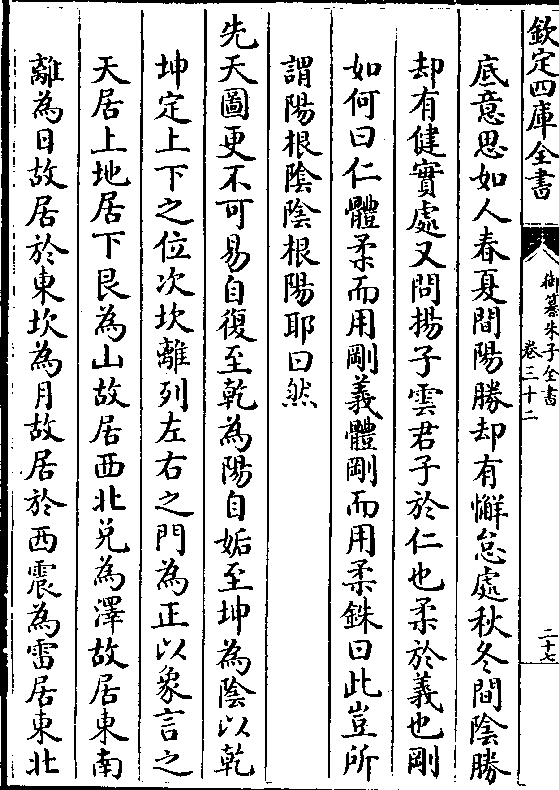 欽定四庫全書
御纂朱子全書
卷三十二
二十七
底意思如人春夏間陽勝却有懈怠處秋冬間陰勝
却有健實處又問揚子雲君子於仁也柔於義也剛
如何曰仁體柔而用剛義體剛而用柔銖曰此豈所
謂陽根陰陰根陽耶曰然
先天圖更不可易自復至乾為陽自姤至坤為陰以乾
坤定上下之位次坎離列左右之門為正以象言之
天居上地居下艮為山故居西北兌為澤故居東南
離為日故居於東坎為月故居於西震為雷居東北